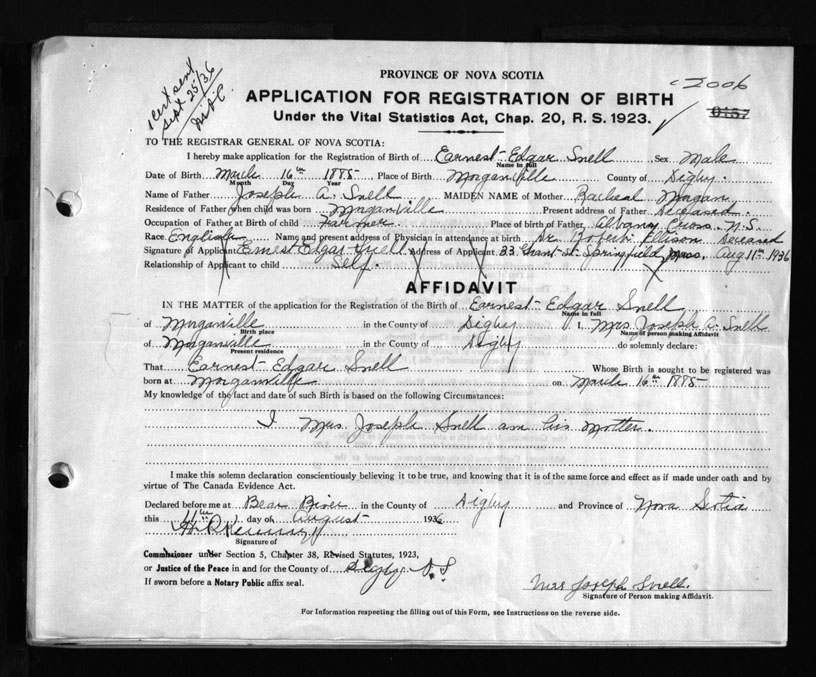 1 Cert sent
Sept 25/36
PROVINCE OF NOVA SCOTIA
2006
APPLICATION FOR REGISTRATION OF BIRTH
0157
Under the Vital Statistics Act, Chap. 20, R. S. 1923.
TO THE REGISTRAR GENERAL OF NOVA SCOTIA:
I hereby make application for the Registration of Birth of Earnest Edgar Snell Sex Male
Name in full
Date of Birth March 16th 1885 Place of Birth Morganville County of Digby
Month Day Year
Name of Father Joseph A. Snell MAIDEN NAME of Mother Racheal Morgan
Residence of Father when child was born Morganville Present address of Father Deceased.
Occupation of Father at Birth of child Farmer Place of birth of Father Albany Cross N.S.
Race English Name and present address of Physician in attendance at birth Dr Robert Ellison Deceased
Signature of Applicant Ernest Edgar Snell Address of Applicant 33 Grant St. Springfield, Mass. Aug 11th 1936
Relationship of Applicant to child Self.
AFFIDAVIT
IN THE MATTER of the application for the Registration of the Birth of Earnest Edgar Snell
Name in full
of Morganville in the County of Digby I, Mrs Joseph A. Snell
Birth place Name of person making Affidavit
of Morganville in the County of Digby do solemnly declare:
Present residence
That Earnest Edgar Snell Whose Birth is sought to be registered was
born at Morganville on March 16th 1885
My knowledge of the fact and date of such Birth is based on the following Circumstances:
I Mrs Joseph Snell am his Mother.
I make this solemn declaration conscientiously believing it to be true, and knowing that it is of the same force and effect as if made under oath and by
virtue of The Canada Evidence Act.
Declared before me at Bear River in the County of Digby and Province of Nova Scotia
this 11th day of August 1936
Signature of
Commissioner under Section 5, Chapter 38, Revised Statutes, 1923,
or Justice of the Peace in and for the County of Digby N.S.
If sworn before a Notary Public affix seal.
Mrs Joseph Snell.
Signature of Person making Affidavit.
For Information respecting the filling out of this Form, see Instructions on the reverse side.